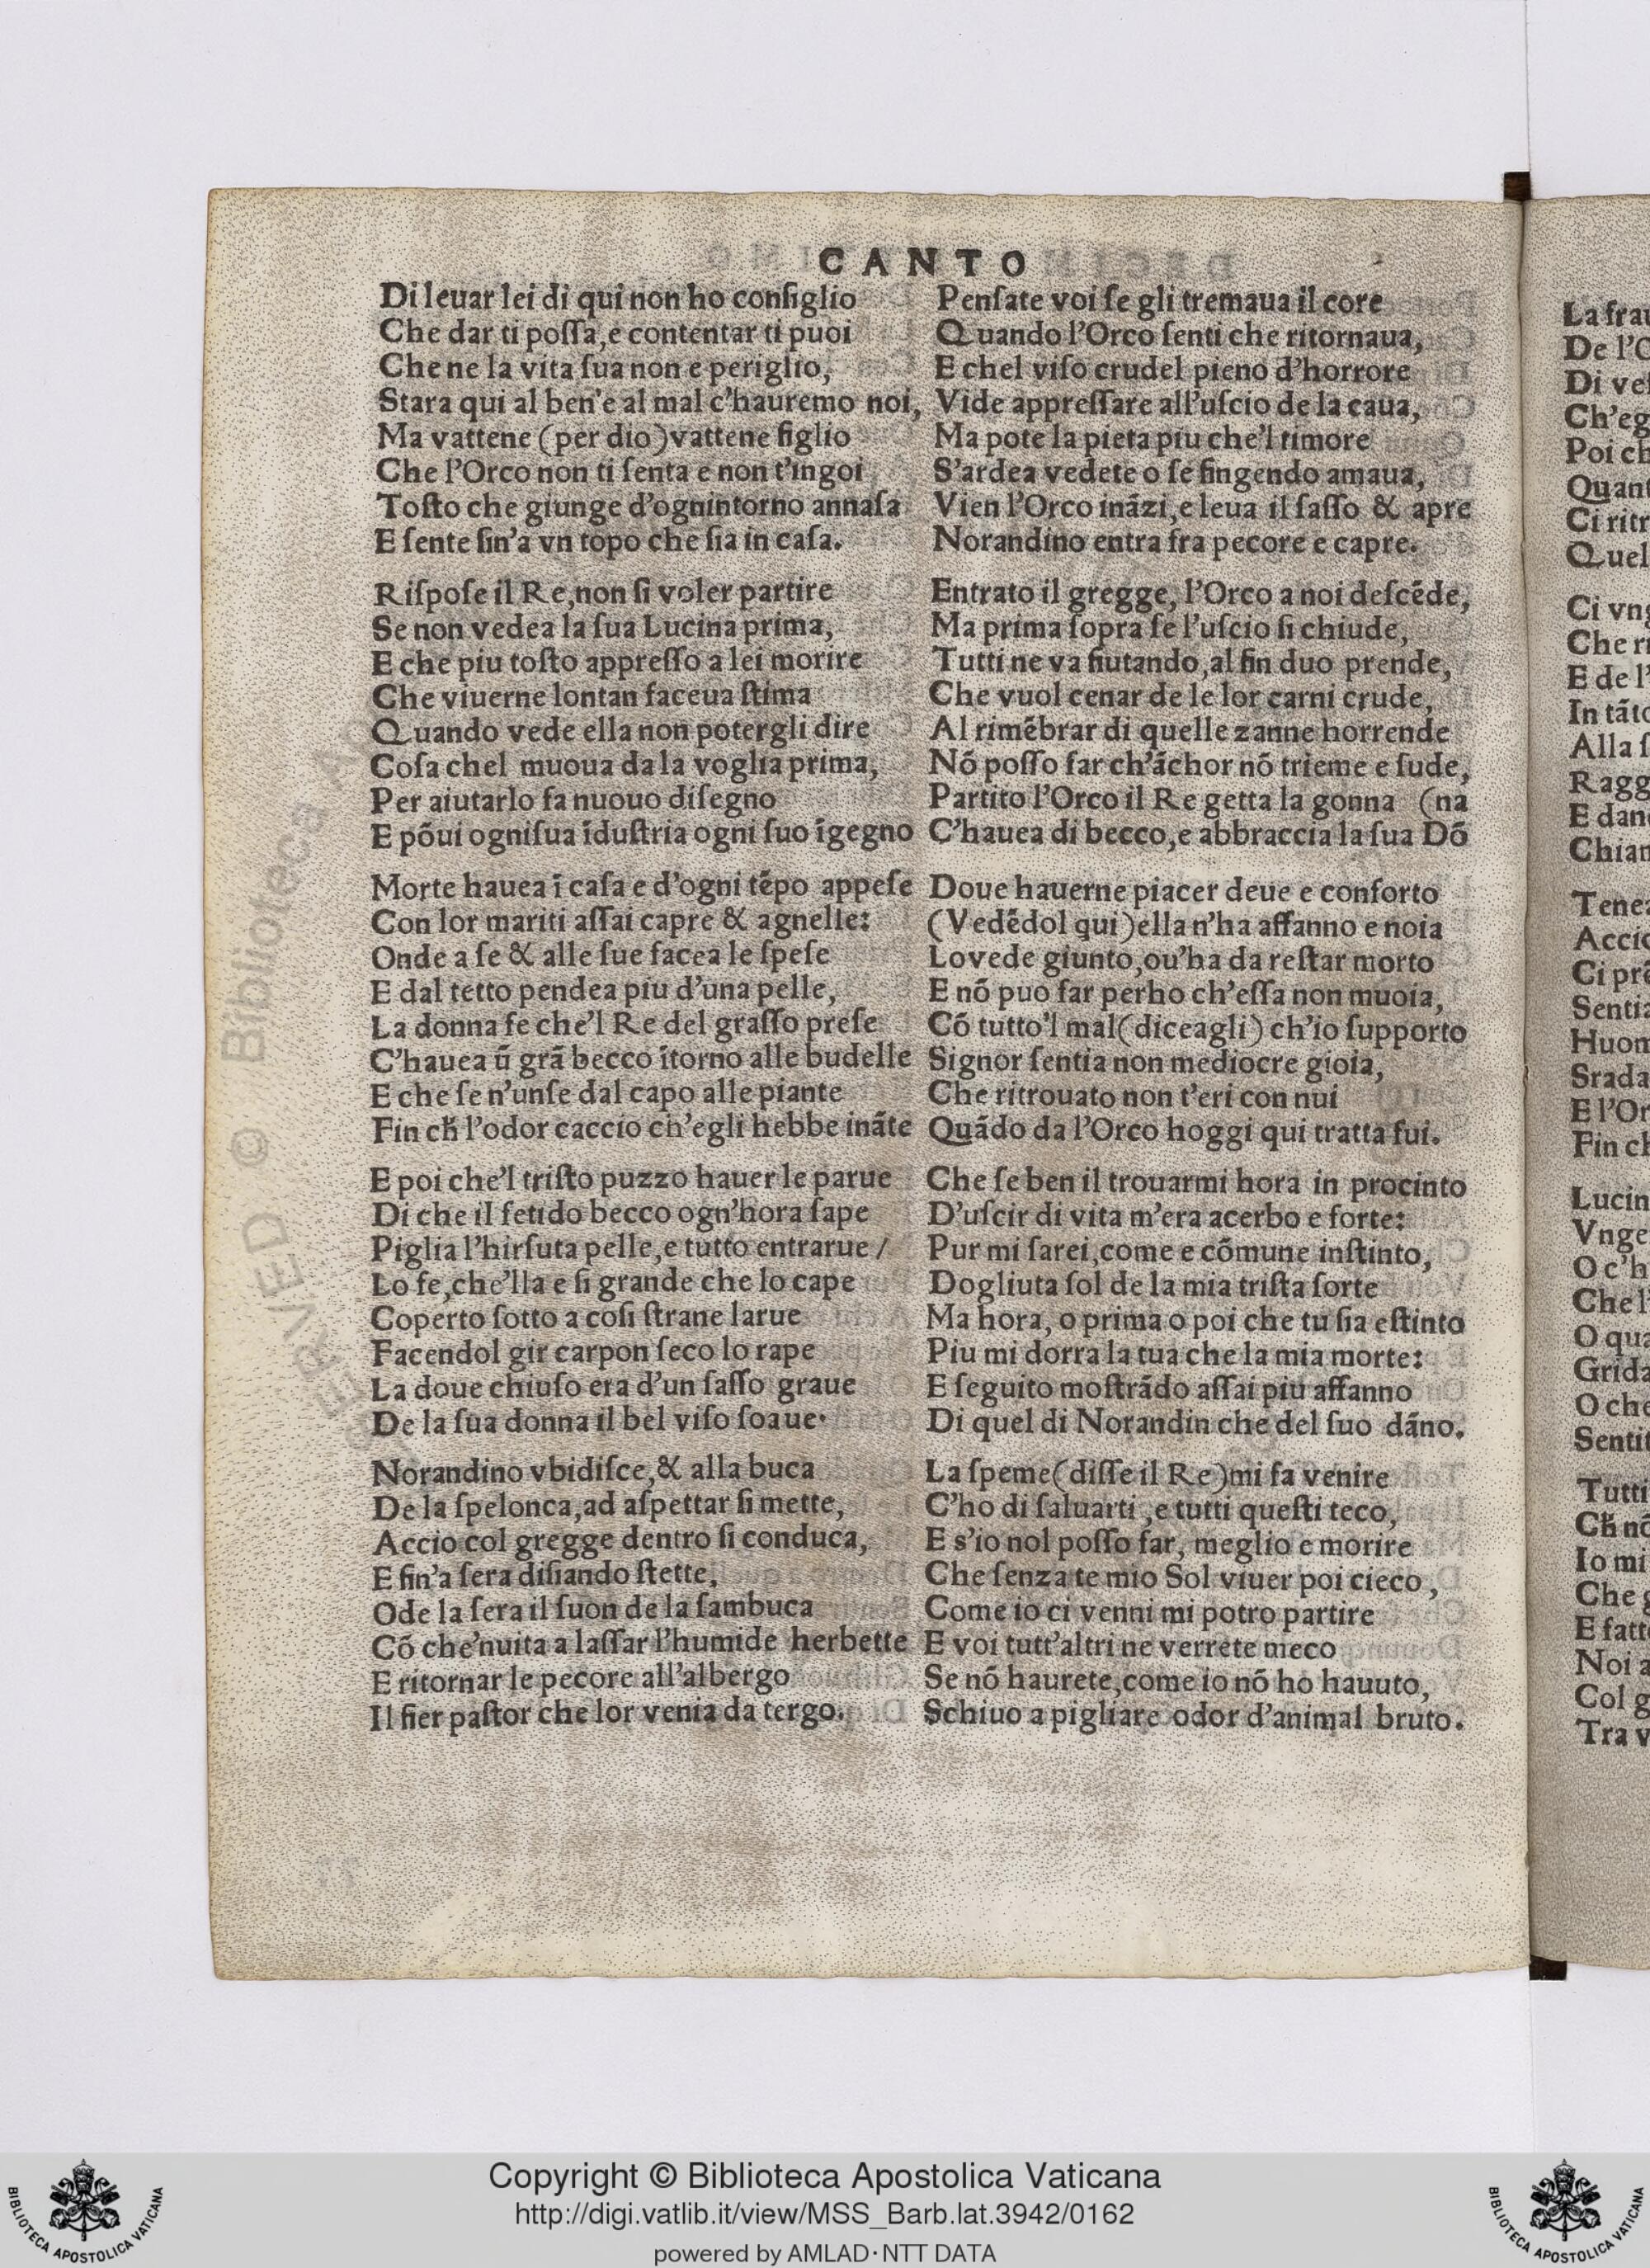 CANTO
Di leuar lei di qui non ho conſiglio
Che dar ti poſſa, e contentar ti puoi
Che ne la vita ſua non e periglio,
Stara qui al ben'e al mal c'hauremo noi,
Ma vattene (per dio) vattene figlio
Che l'Orco non ti ſenta e non t'ingoi
Toſto che giunge d'ognintorno annaſa
E ſente ſin'a vn topo che ſia in caſa.
Riſpoſe il Re, non ſi voler partire
Se non vedea la ſua Lucina prima,
E che piu toſto appreſſo a lei morire
Che viuerne lontan faceua ſtima
Quando vede ella non potergli dire
Coſa chel muoua da la voglia prima,
Per aiutarlo fa nuouo diſegno
E põui ogni ſua ĩduſtria ogni ſuo ĩgegno
Morte hauea ĩ caſa e d'ogni tẽpo appeſe
Con lor mariti aſſai capre & agnelle:
Onde a ſe & alle ſue facea le ſpeſe
E dal tetto pendea piu d'una pelle,
La donna fe che'l Re del graſſo preſe
C'hauea ũ grã becco ĩtorno alle budelle
E che ſe n'unſe dal capo alle piante
Fin ch̃ l'odor caccio ch'egli hebbe inãte
E poi che'l triſto puzzo hauer le parue
Di che il fetido becco ogn'hora ſape
Piglia l'hirſuta pelle, e tutto entrarue /
Lo fe, che'lla e ſi grande che lo cape
Coperto ſotto a coſi ſtrane larue
Facendol gir carpon ſeco lo rape
La doue chiuſo era d'un ſaſſo graue
De la ſua donna il bel viſo ſoaue.
Norandino vbidiſce, & alla buca
De la ſpelonca, ad aſpettar ſi mette,
Accio col gregge dentro ſi conduca,
E fin'a ſera diſiando ſtette,
Ode la ſera il ſuon de la ſambuca
Cõ che'nuita a laſſar l'humide herbette
E ritornar le pecore all'albergo
Il fier paſtor che lor venia da tergo.
Penſate voi ſe gli tremaua il core
Quando l'Orco ſenti che ritornaua,
E chel viſo crudel pieno d'horrore
Vide appreſſare all'uſcio de la caua,
Ma pote la pieta piu che'l timore
S'ardea vedete o ſe fingendo amaua,
Vien l'Orco inãzi, e leua il ſaſſo & apre
Norandino entra fra pecore e capre.
Entrato il gregge, l'Orco a noi deſcẽde,
Ma prima ſopra ſe l'uſcio ſi chiude,
Tutti ne va fiutando, al fin duo prende,
Che vuol cenar de le lor carni crude,
Al rimẽbrar di quelle zanne horrende
Nõ poſſo far ch'ãchor nõ trieme e ſude,
Partito l'Orco il Re getta la gonna (na
C'hauea di becco, e abbraccia la ſua Dõ
Doue hauerne piacer deue e conforto
(Vedẽdol qui) ella n'ha affanno e noia
Lo vede giunto, ou'ha da reſtar morto
E nõ puo far perho ch'eſſa non muoia,
Cõ tutto'l mal (diceagli) ch'io ſupporto
Signor ſentia non mediocre gioia,
Che ritrouato non t'eri con nui
Quãdo da l'Orco hoggi qui tratta fui.
Che ſe ben il trouarmi hora in procinto
D'uſcir di vita m'era acerbo e forte:
Pur mi ſarei, come e cõmune inſtinto,
Dogliuta ſol de la mia triſta ſorte
Ma hora, o prima o poi che tu ſia eſtinto
Piu mi dorra la tua che la mia morte:
E ſeguito moſtrãdo aſſai piu affanno
Di quel di Norandin che del ſuo dãno.
La ſpeme (diſſe il Re) mi fa venire
C'ho di ſaluarti, e tutti queſti teco,
E s'io nol poſſo far, meglio e morire
Che ſenza te mio Sol viuer poi cieco,
Come io ci venni mi potro partire
E voi tutt'altri ne verrete meco
Se nõ haurete, come io nõ ho hauuto,
Schiuo a pigliare odor d'animal bruto.
La frau
De l'O
Di veſ
Ch'eg
Poi ch
Quant
Ci ritr
Quel
Ci vng
Che ri
E de l'
In tãto
Alla ſ
Ragg
E dan
Chian
Tenea
Accio
Ci prẽ
Sentia
Huom
Srada
E l'Or
Fin ch
Lucin
Vnge
O c'h
Che l'
O qua
Grida
O che
Sentit
Tutti
Ch̃ nõ
Io mi
Che g
E fatt
Noi a
Col g
Tra v
Copyright © Biblioteca Apostolica Vaticana
http://digi.vatlib.it/view/MSS_Barb.lat.3942/0162
powered by AMLAD·NTT DATA
BIBLIOTECA APOSTOLICA VATICANA
BIBLIOTECA APOSTOLICA VATICANA